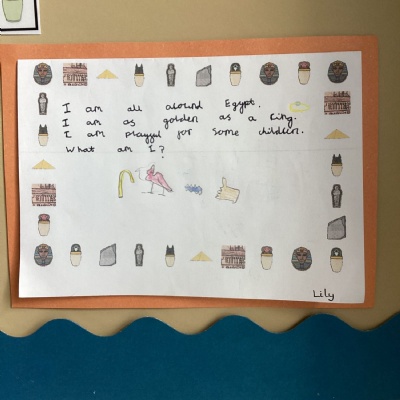 I am all around Egypt.
I am as golden as a King.
I am playful for some children.
What am I?
Lily